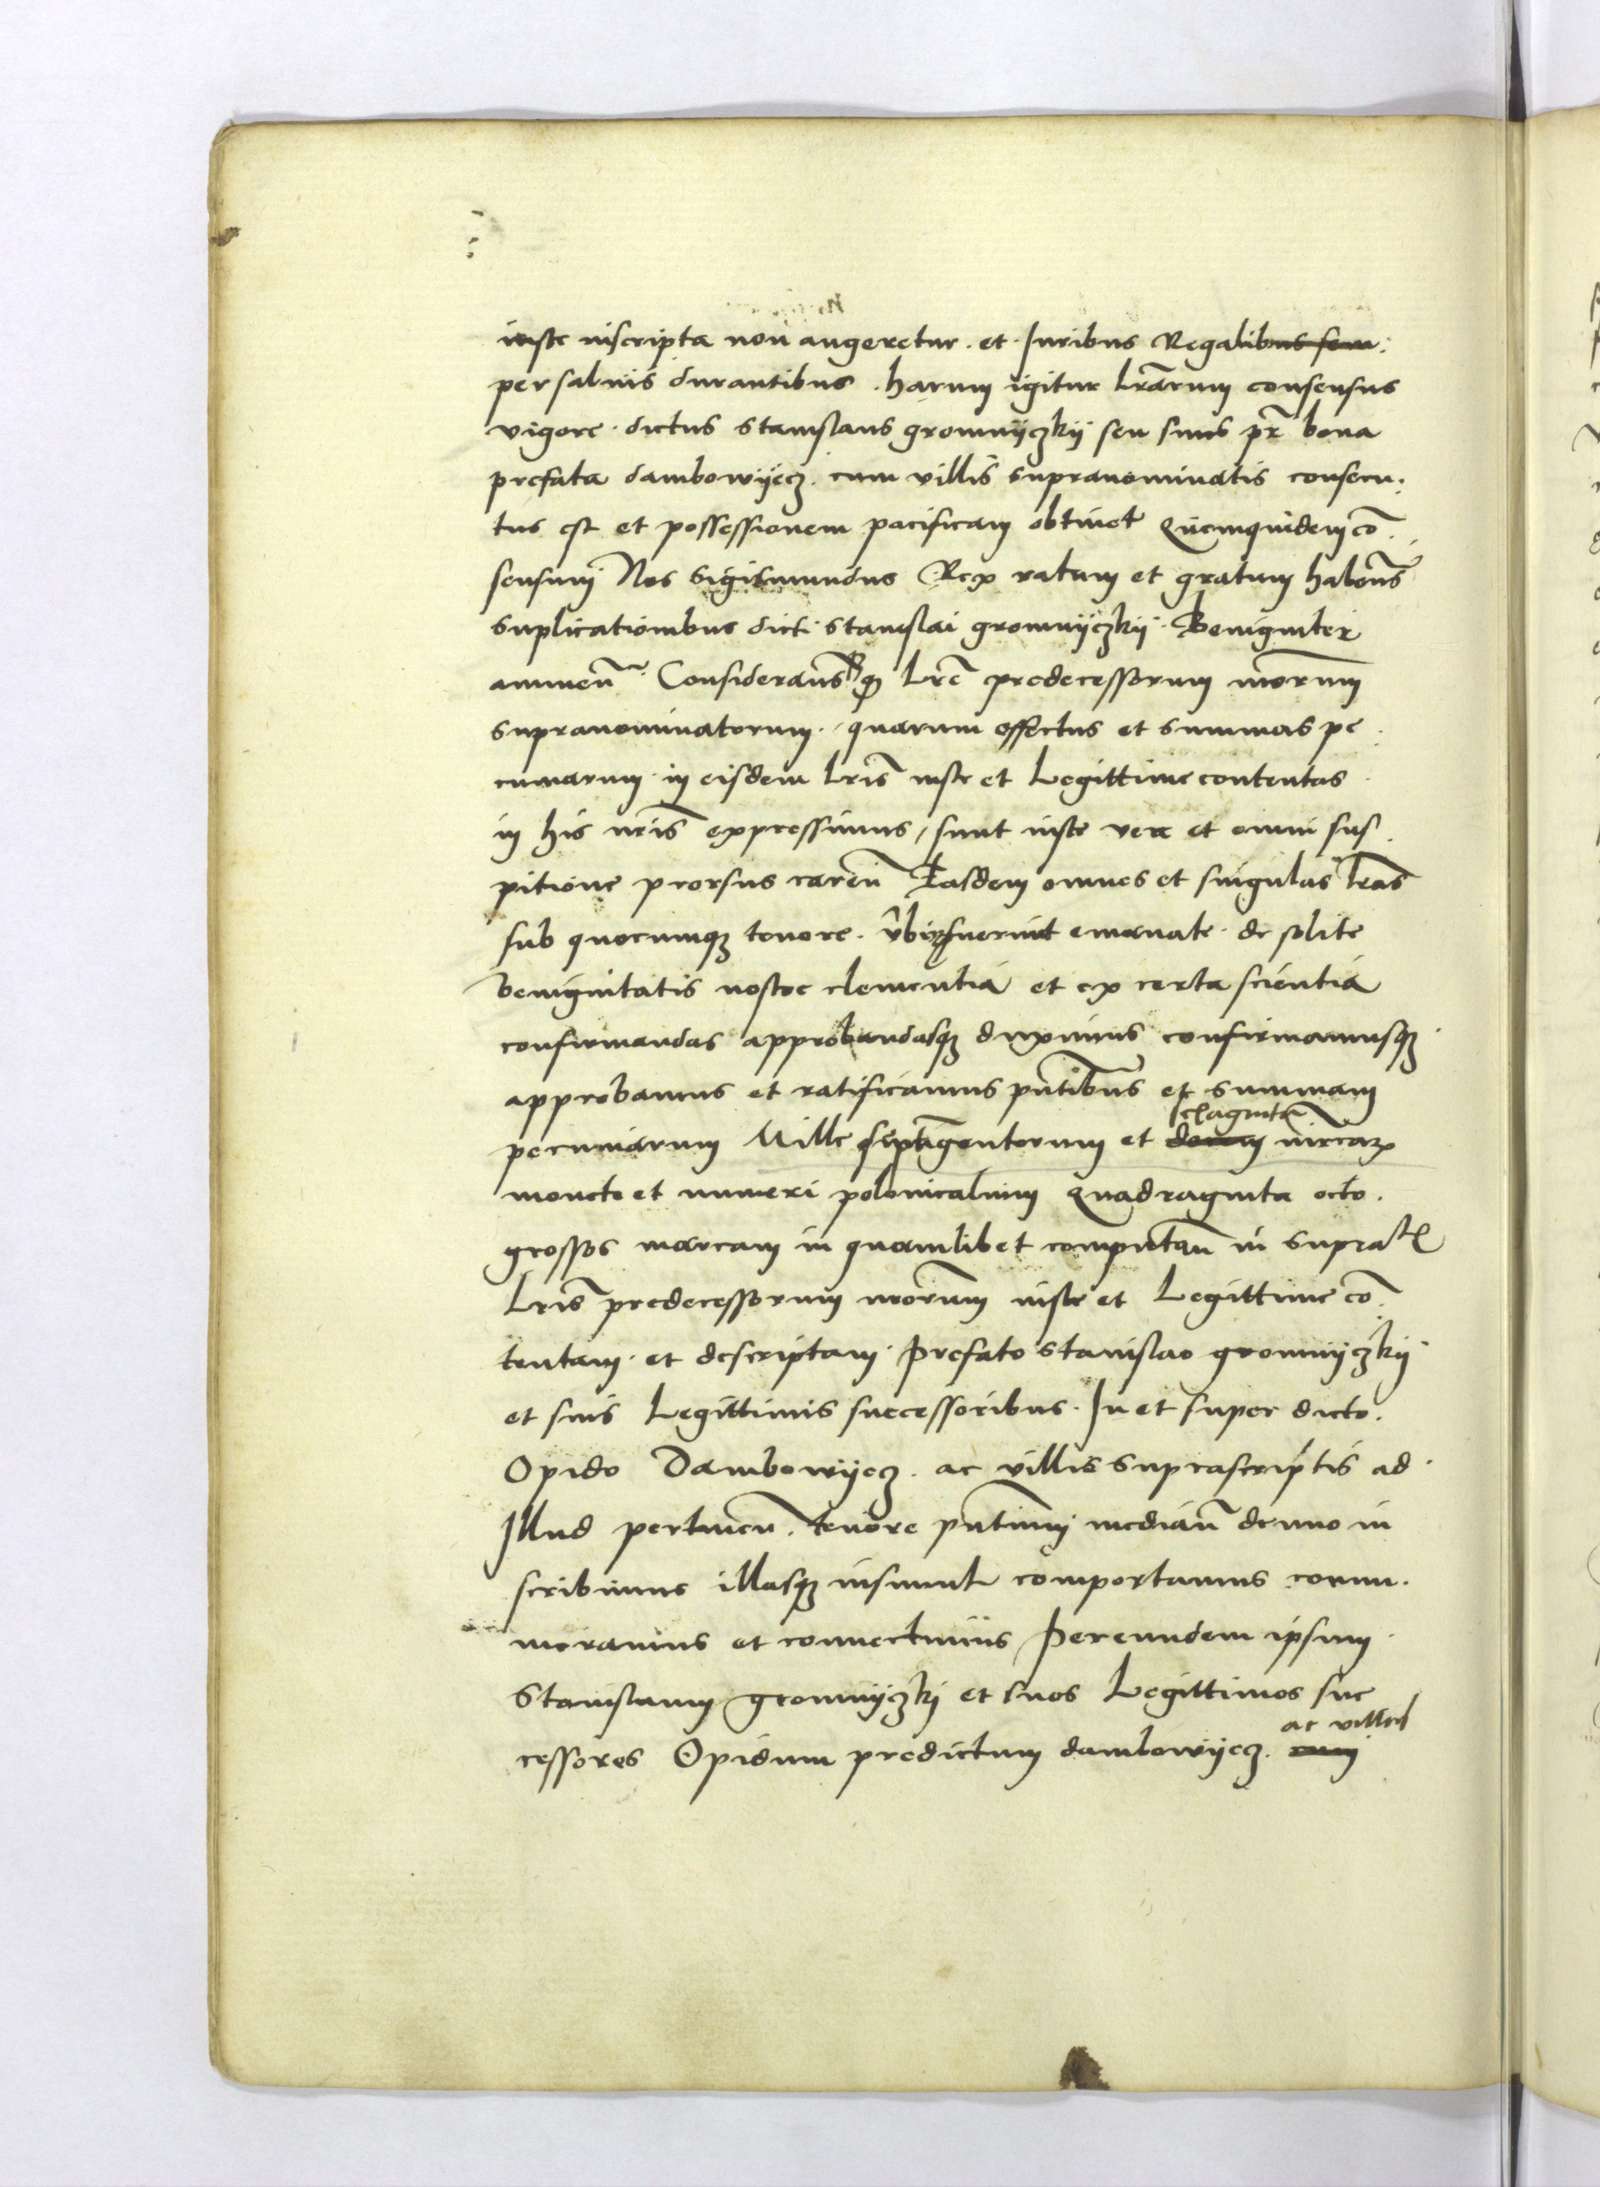 iuste inscripta non augeretur. et Iuribus Regalibus sem:
per salvis durantibus. harum igitur lrarum consensus
vigore. dictus Stanislaus gromnyczkÿ seu suus pr bona
prefata dambowÿecz. cum villis supranominatis consecu.
tus est et possessionem pacificam obtinet Quemquidem co.
sensum Nos Sigismundus Rex ratum et gratum habens
suplicationibus dicti Stanislai gromnÿczkÿ. Benigniter
annuen Considerans lre predecessorum nrorum
supranominatorum. quarum effectus et summas pe
cuniarum in eisdem lris iuste et Legittime contentas
in his nris expressimus, sunt iuste vere et omni sus
pitione prorsus caren Easdem omnes et singulas lras
sub quocumq tenore. fuerint emanate. de solite
benignitatis nostre clementia et ex certa scientia
confirmandas approbandasq duximus confirmamusq
approbamus et ratificamus pntibus et summam
exaginta
pecuniarum Mille septigentorum et decem mrcar
monete et numeri polonicalium Quadraginta octo.
grossos marcam in quamlibet computan in supra
lris predecessorum nrorum iuste et Legittime co.
tentam. et descriptam. Prefato Stanislao gromnÿczkÿ
et suis Legittimis successoribus. In et super dicto.
Opido Dambowÿecz. ac villis suprascriptis ad.
Illud pertinen. tenore pntium median denuo in
scribimus illasq insimul comportamus connu.
meramus et connectimus Per eundem ipsum
Stanislaum gromnÿczkj et suos Legittimos suc
ac villas
cessores Opidum predictum dambowÿecz. cum